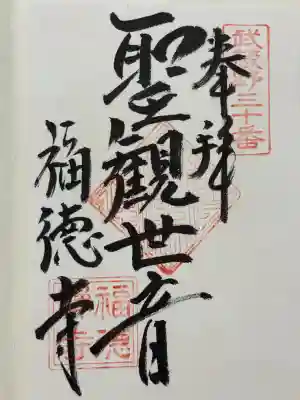 武蔵野三十番
奉拝
聖觀世音
福徳寺
福徳
寺